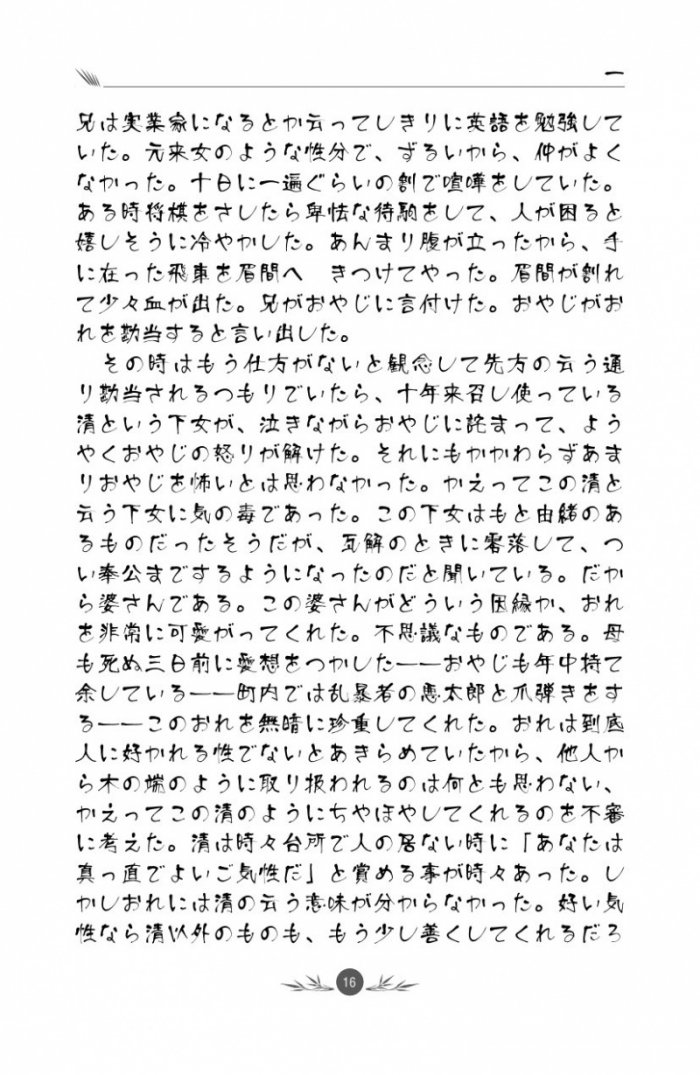 一
兄は実業家になるとか云ってしきりに英語を勉強して
いた。元来女のような性分で、ずるいから、仲がよく
なかった。十日に一遍ぐらいの割で喧嘩をしていた。
ある時将棋をさしたら卑怯な待駒をして、人が困ると
嬉しそうに冷やかした。あんまり腹が立ったから、手
に在った飛車を眉間へ　きつけてやった。眉間が割れ
て少々血が出た。兄がおやじに言付けた。おやじがお
れを勘当すると言い出した。
　その時はもう仕方がないと観念して先方の云う通
り勘当されるつもりでいたら、十年来召し使っている
清という下女が、泣きながらおやじに詫まって、よう
やくおやじの怒りが解けた。それにもかかわらずあま
りおやじを怖いとは思わなかった。かえってこの清と
云う下女に気の毒であった。この下女はもと由緒のあ
るものだったそうだが、瓦解のときに零落して、つ
い奉公までするようになったのだと聞いている。だか
ら婆さんである。この婆さんがどういう因縁か、おれ
を非常に可愛がってくれた。不思議なものである。母
も死ぬ三日前に愛想をつかした——おやじも年中持て
余している——町内では乱暴者の悪太郎と爪弾きをす
る——このおれを無暗に珍重してくれた。おれは到底
人に好かれる性でないとあきらめていたから、他人か
ら木の端のように取り扱われるのは何とも思わない、
かえってこの清のようにちやほやしてくれるのを不審
に考えた。清は時々台所で人の居ない時に「あなたは
真っ直でよいご気性だ」と賞める事が時々あった。し
かしおれには清の云う意味が分からなかった。好い気
性なら清以外のものも、もう少し善くしてくれるだろ
16